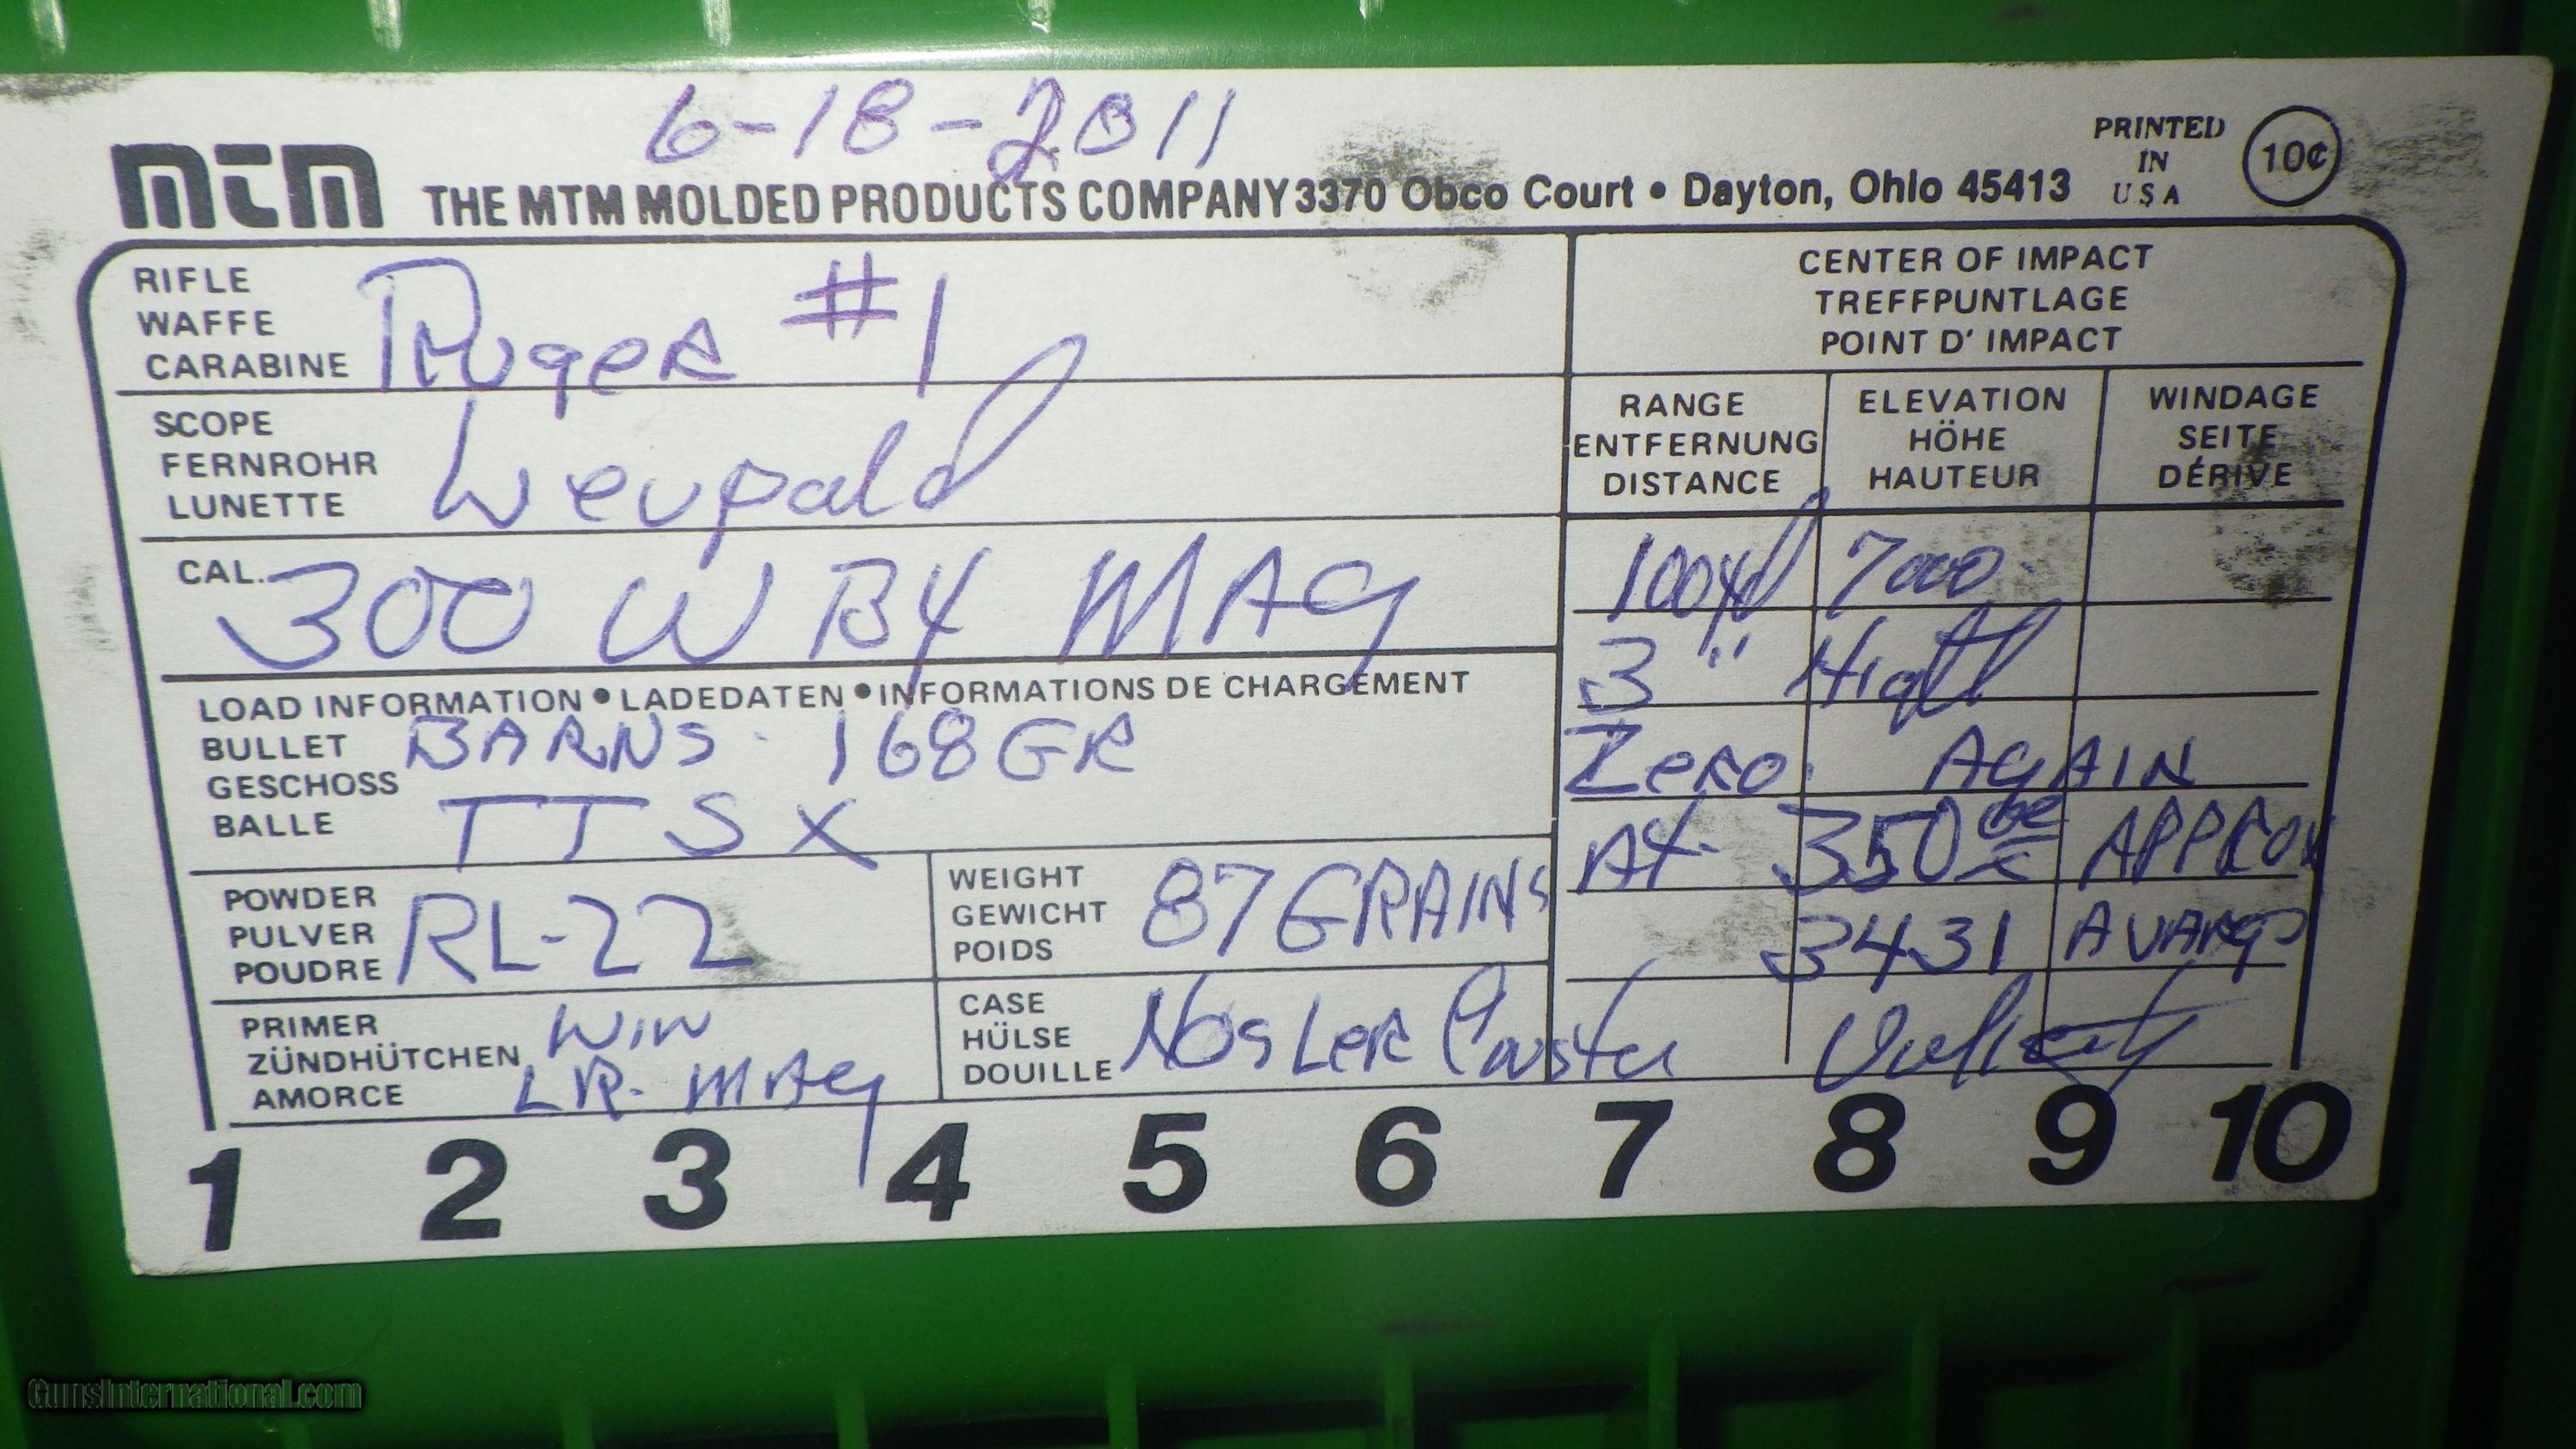 6-18-2011
mtm THE MTM MOLDED PRODUCTS COMPANY 3370 Obco Court • Dayton, Ohio 45413
PRINTED
IN
USA
10¢
RIFLE
WAFFE
CARABINE
Ruger #1
SCOPE
FERNROHR
LUNETTE
Leupald
CAL. 300 WBY MAG
LOAD INFORMATION • LADEDATEN • INFORMATIONS DE CHARGEMENT
BULLET
GESCHOSS
BALLE
BARNS 168GR
TTSX
POWDER
PULVER
POUDRE
RL-22
WEIGHT
GEWICHT
POIDS
87 GRAINS
PRIMER
ZÜNDHÜTCHEN
AMORCE
WIN
LR. MAG
CASE
HÜLSE
DOUILLE
Nosler
CENTER OF IMPACT
TREFFPUNTLAGE
POINT D' IMPACT
RANGE
ENTFERNUNG
DISTANCE
ELEVATION
HÖHE
HAUTEUR
WINDAGE
SEITE
DÉRIVE
100yd
3" High
Zero AGAIN
At 350 APPROX
3431
1 2 3 4 5 6 7 8 9 10
GunsInternational.com